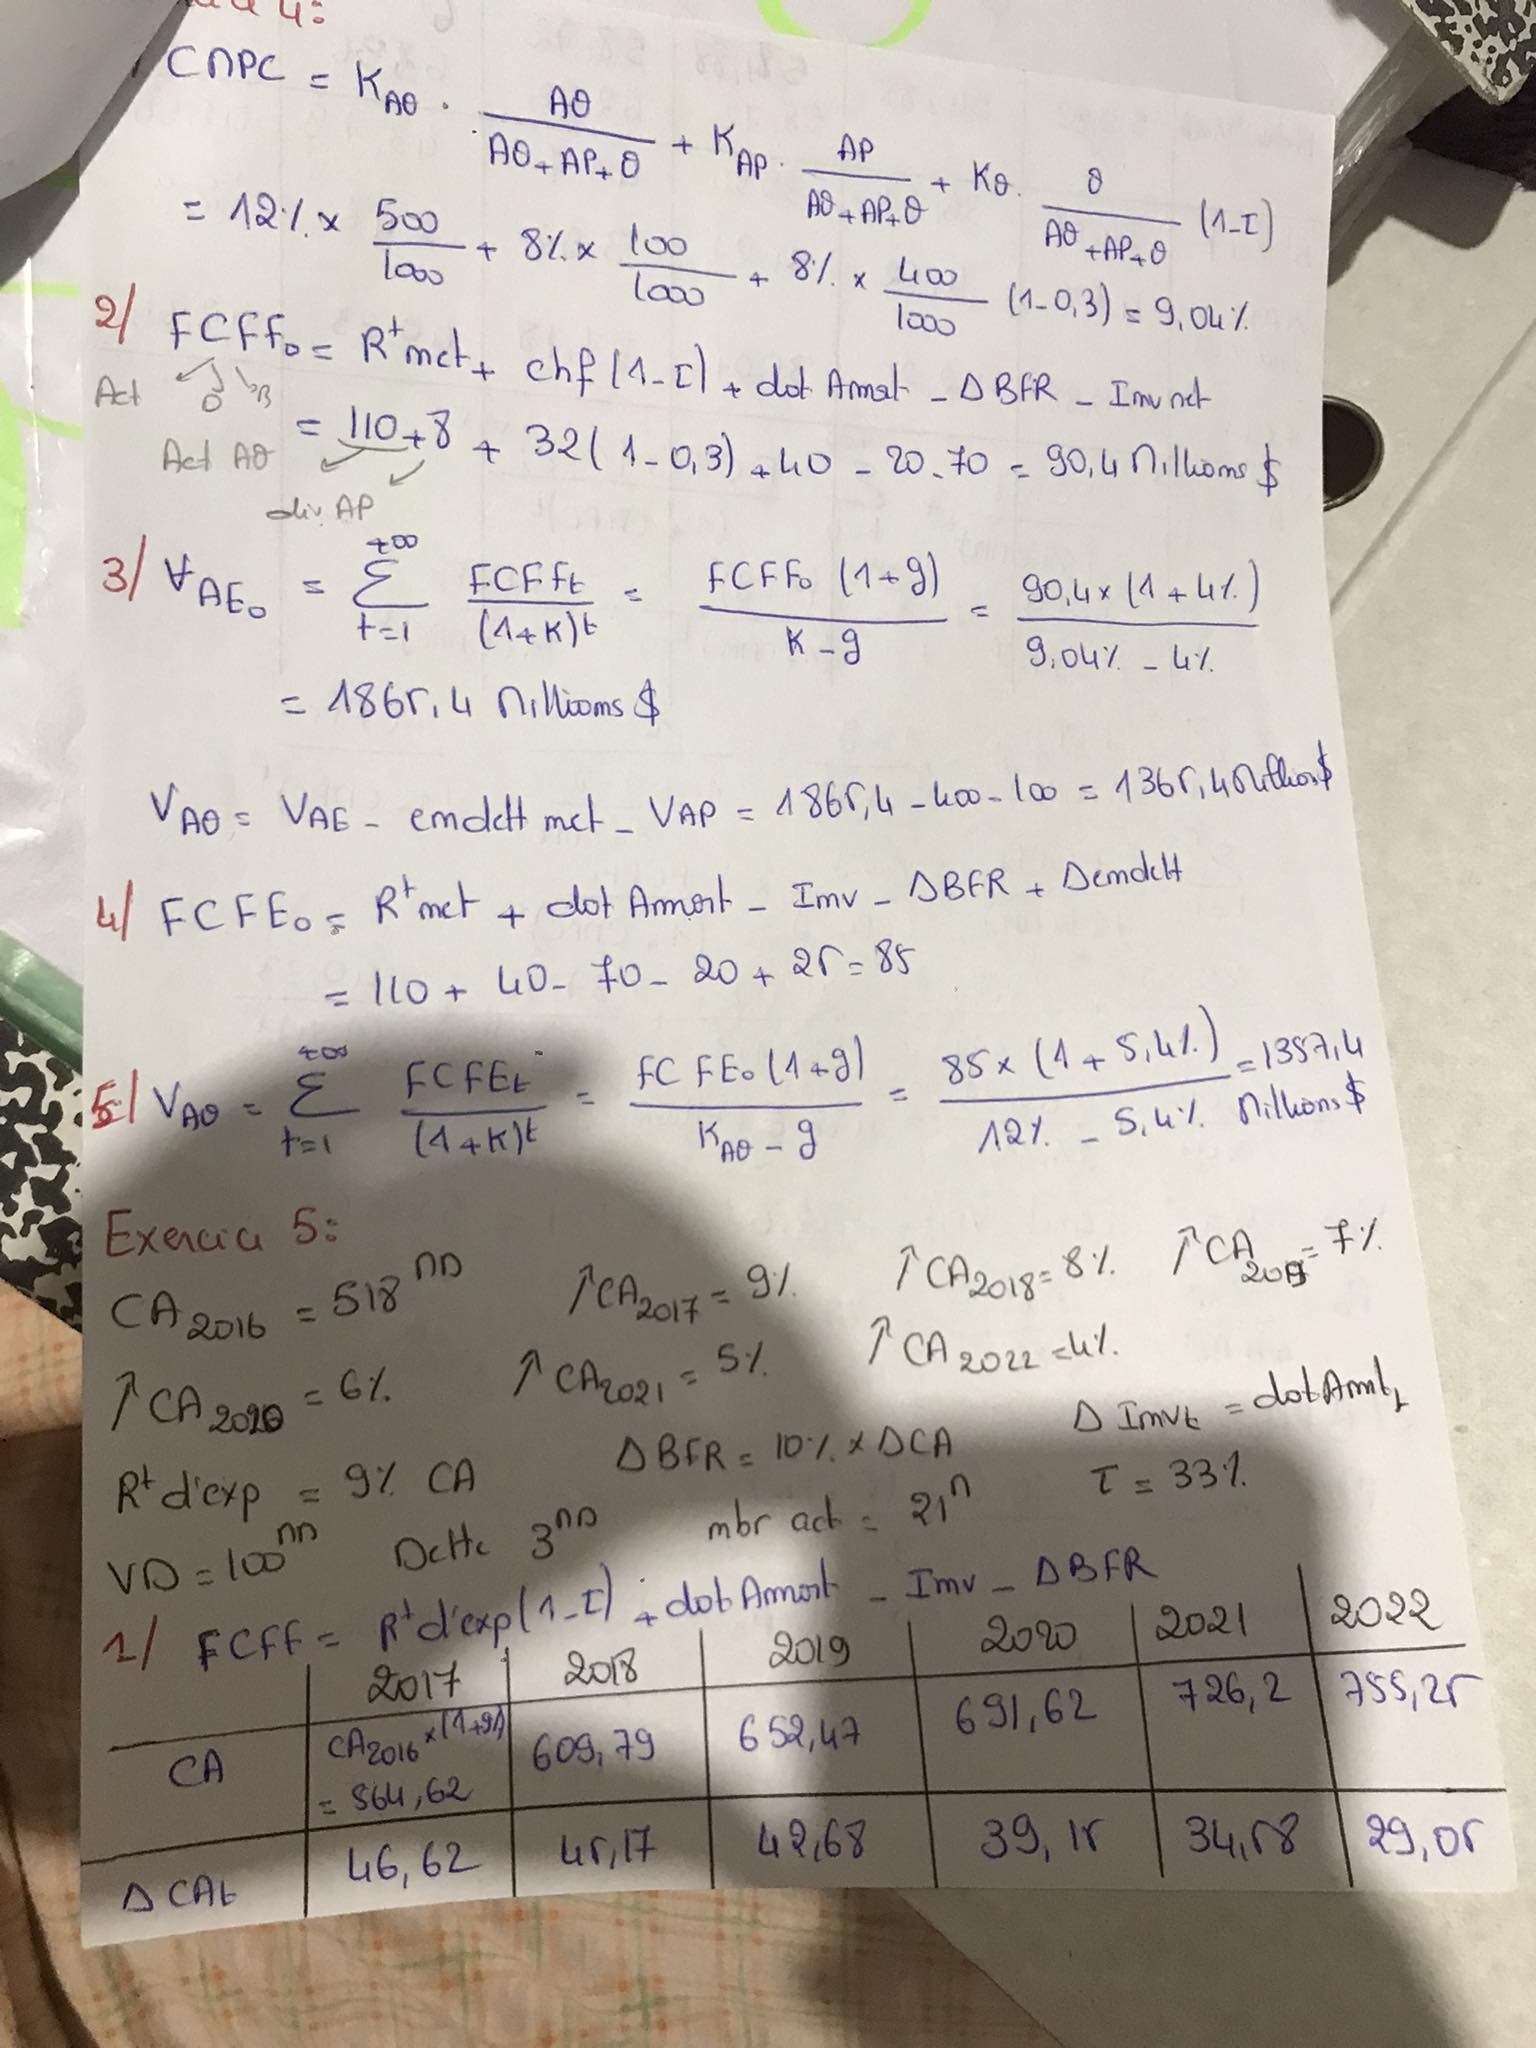 4:
CMPC = K_AO . AO / (AO + AP + O) + K_AP . AP / (AO + AP + O) + K_O . O / (AO + AP + O) (1-I)
= 12% x 500/1000 + 8% x 100/1000 + 8% x 400/1000 (1-0,3) = 9,04%
2/ FCFF₀ = R^t net + chf (1-I) + dot Amort - Δ BFR - Inv net
Act O B
= 110 + 8 + 32 (1-0,3) + 40 - 20 - 70 = 90,4 Millions $
Act AO
div AP
3/ V_AE₀ = Σ_{t=1}^{+∞} FCFF_t / (1+K)^t = FCFF₀ (1+g) / (K-g) = 90,4 x (1+4%) / (9,04% - 4%)
= 1865,4 Millions $
V_AO = V_AE - endett net - V_AP = 1865,4 - 400 - 100 = 1365,4 Millions $
4/ FCFE₀ = R^t net + dot Amort - Inv - Δ BFR + Δ endett
= 110 + 40 - 70 - 20 + 25 = 85
5/ V_AO = Σ_{t=1}^{+∞} FCFE_t / (1+K)^t = FCFE₀ (1+g) / (K_AO - g) = 85 x (1 + 5,4%) / (12% - 5,4%) = 1357,4 Millions $
Exercice 5:
CA2016 = 518 MD ↑CA2017 = 9% ↑CA2018 = 8% ↑CA2019 = 7%
↑CA2020 = 6% ↑CA2021 = 5% ↑CA2022 = 4%
R^t d'exp = 9% CA Δ BFR = 10% x Δ CA Δ Inv_t = dot Amt_t
VD = 100 MD Dette 3 MD nbr act = 21 M τ = 33%
1/ FCFF = R^t d'exp (1-I) + dot Amort - Inv - Δ BFR
2017 2018 2019 2020 2021 2022
CA CA2016 x (1+g1) = 564,62 609,79 652,47 691,62 726,2 755,25
Δ CA_t 46,62 45,17 42,68 39,15 34,58 29,05